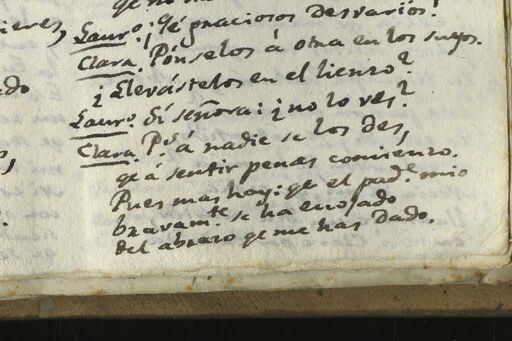 ieres,
ado
Lauro. ¡Qé graciosos desvaríos!
Clara. Pónselos á otra en los suyos.
¿Llevástelos en el lienzo?
Lauro. Sí señora: ¿no lo ves?
Clara. Ps. á nadie se los des,
qe á sentir penas comienzo.
Pues mas hay: qe el pade mio
bravamte se ha enojado
del abrazo qe me has dado.